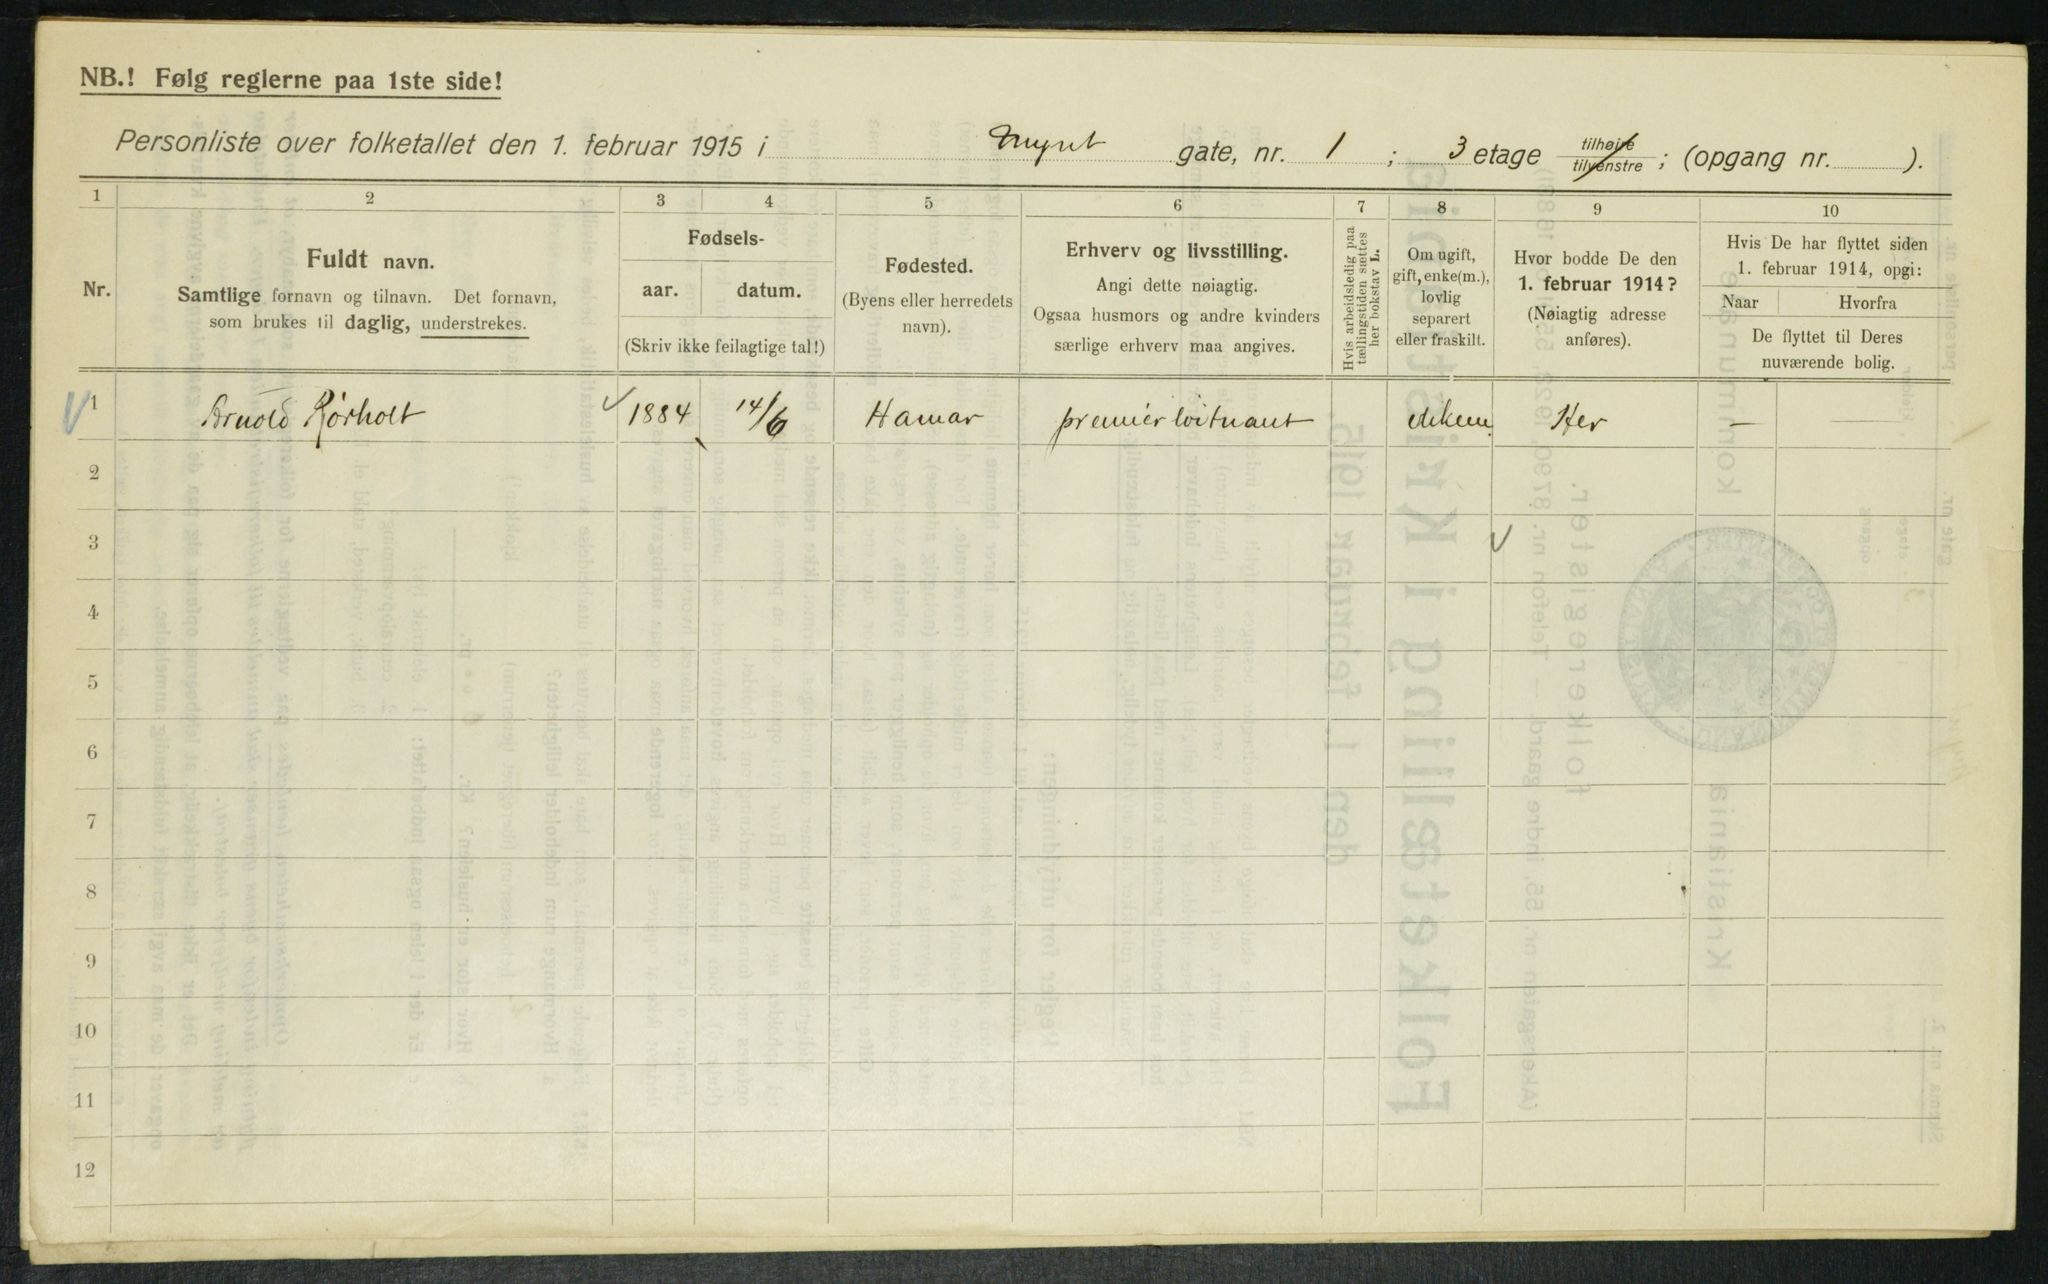 NB.! Følg reglerne paa 1ste side!
Personliste over folketallet den 1. februar 1915 i Mynt gate, nr. 1 ; 3 etage tilhøire tilvenstre ; (opgang nr. ).
1 2 3 4 5 6 7 8 9 10
Nr.
Fuldt navn.
Samtlige fornavn og tilnavn. Det fornavn,
som brukes til daglig, understrekes.
Fødsels-
aar. datum.
(Skriv ikke feilagtige tal!)
Fødested.
(Byens eller herredets
navn).
Erhverv og livsstilling.
Angi dette nøiagtig.
Ogsaa husmors og andre kvinders
særlige erhverv maa angives.
Hvis arbeidsledig paa
tællingstiden sættes
her bokstav L.
Om ugift,
gift, enke(m.),
lovlig
separert
eller fraskilt.
Hvor bodde De den
1. februar 1914?
(Nøiagtig adresse
anføres).
Hvis De har flyttet siden
1. februar 1914, opgi:
Naar Hvorfra
De flyttet til Deres
nuværende bolig.
1 Arnold Rørholt 1884 14/6 Hamar premierløitnant Her —
2
3
4
5
6
7
8
9
10
11
12